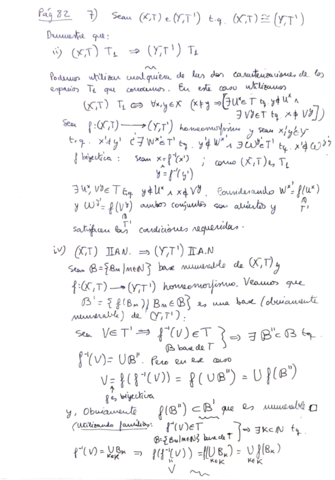 Pág 82 7) Sean (X,T) e (Y,T') t.q. (X,T) ≅ (Y,T')
Demuestre que:
ii) (X,T) T₁ ⇒ (Y,T') T₁
Podemos utilizar cualquiera de las dos caracterizaciones de los
espacios T₁ que conocemos. En este caso utilizamos
(X,T) T₁ ⇔ ∀x,y∈X (x≠y ⇒ [∃Uˣ∈T t.q. y∉Uˣ ∧
∃Vʸ∈T t.q. x∉Vʸ])
Sea f:(X,T) → (Y,T') homeomorfismo y sean x',y'∈Y
t.q. x'≠y' ¿∃Wˣ'∈T' t.q. y'∉Wˣ' ∧ ∃Wʸ'∈T' t.q. x'∉Wʸ'?
f bijectiva: sean x=f⁻¹(x') ; como (X,T) es T₁
y=f⁻¹(y')
∃Uˣ, Vʸ∈T t.q. y∉Uˣ ∧ x∉Vʸ. Considerando Wˣ'=f(Uˣ)
y Wʸ'=f(Vʸ) ambos conjuntos son abiertos y
satisfacen las condiciones requeridas.
iv) (X,T) IIAN. ⇒ (Y,T') IIAN
Sean B={Bₙ|n∈N} base numerable de (X,T) y
f:(X,T) → (Y,T') homeomorfismo. Veamos que
B'={f(Bₙ)|Bₙ∈B} es una base (obviamente
numerable) de (Y,T').
Sea V∈T' ⇒ f⁻¹(V)∈T } ⇒ ∃B''⊂B t.q.
B base de T
f⁻¹(V)=∪B''. Pero en ese caso
V=f(f⁻¹(V))=f(∪B'')=∪f(B'')
f es bijectiva
y, obviamente f(B'')⊂B' que es numerable □
(utilizando familias: f⁻¹(V)∈T } ⇒ ∃K⊂N t.q.
B={Bₙ|n∈N} base de T
f⁻¹(V)=∪Bₖ ⇒ f(f⁻¹(V))=f(∪Bₖ)=∪f(Bₖ)
k∈K k∈K k∈K
V